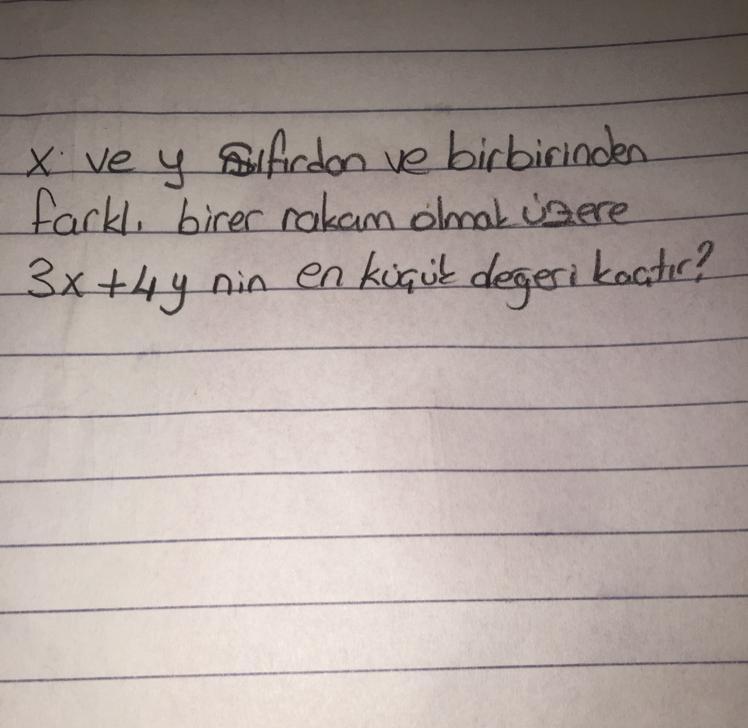 x ve y sıfırdan ve birbirinden
farklı birer rakam olmak üzere
3x+4y nin en küçük değeri kaçtır?